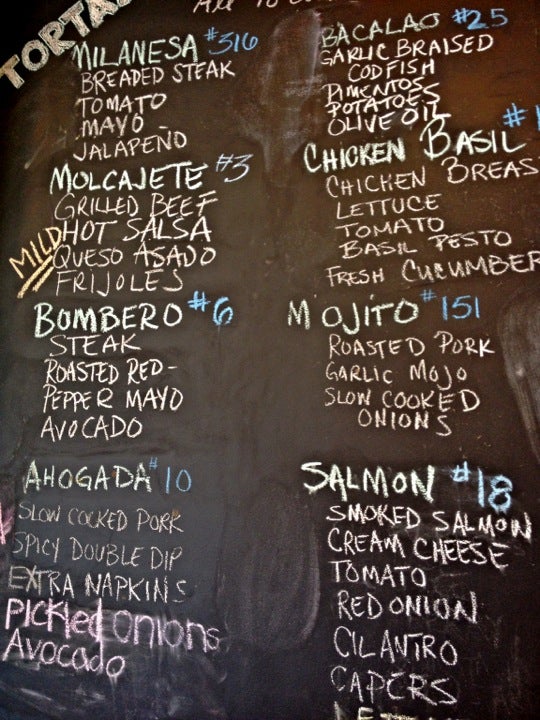 TORTAS
MILANESA #316
BREADED STEAK
TOMATO
MAYO
JALAPEÑO
MOLCAJETE #3
GRILLED BEEF
MILD HOT SALSA
QUESO ASADO
FRIJOLES
BOMBERO #6
STEAK
ROASTED RED-
PEPPER MAYO
AVOCADO
AHOGADA #10
SLOW COCKED PORK
SPICY DOUBLE DIP
EXTRA NAPKINS
PICKled onions
Avocado
BACALAO #25
GARLIC BRAISED
CODFISH
PIMENTOS
POTATOES
OLIVE OIL
CHICKEN BASIL #1
CHICKEN BREAS
LETTUCE
TOMATO
BASIL PESTO
FRESH CUCUMBER
MOJITO #151
ROASTED PORK
GARLIC MOJO
SLOW COOKED
ONIONS
SALMON #18
SMOKED SALMON
CREAM CHEESE
TOMATO
RED ONION
CILANTRO
CAPERS